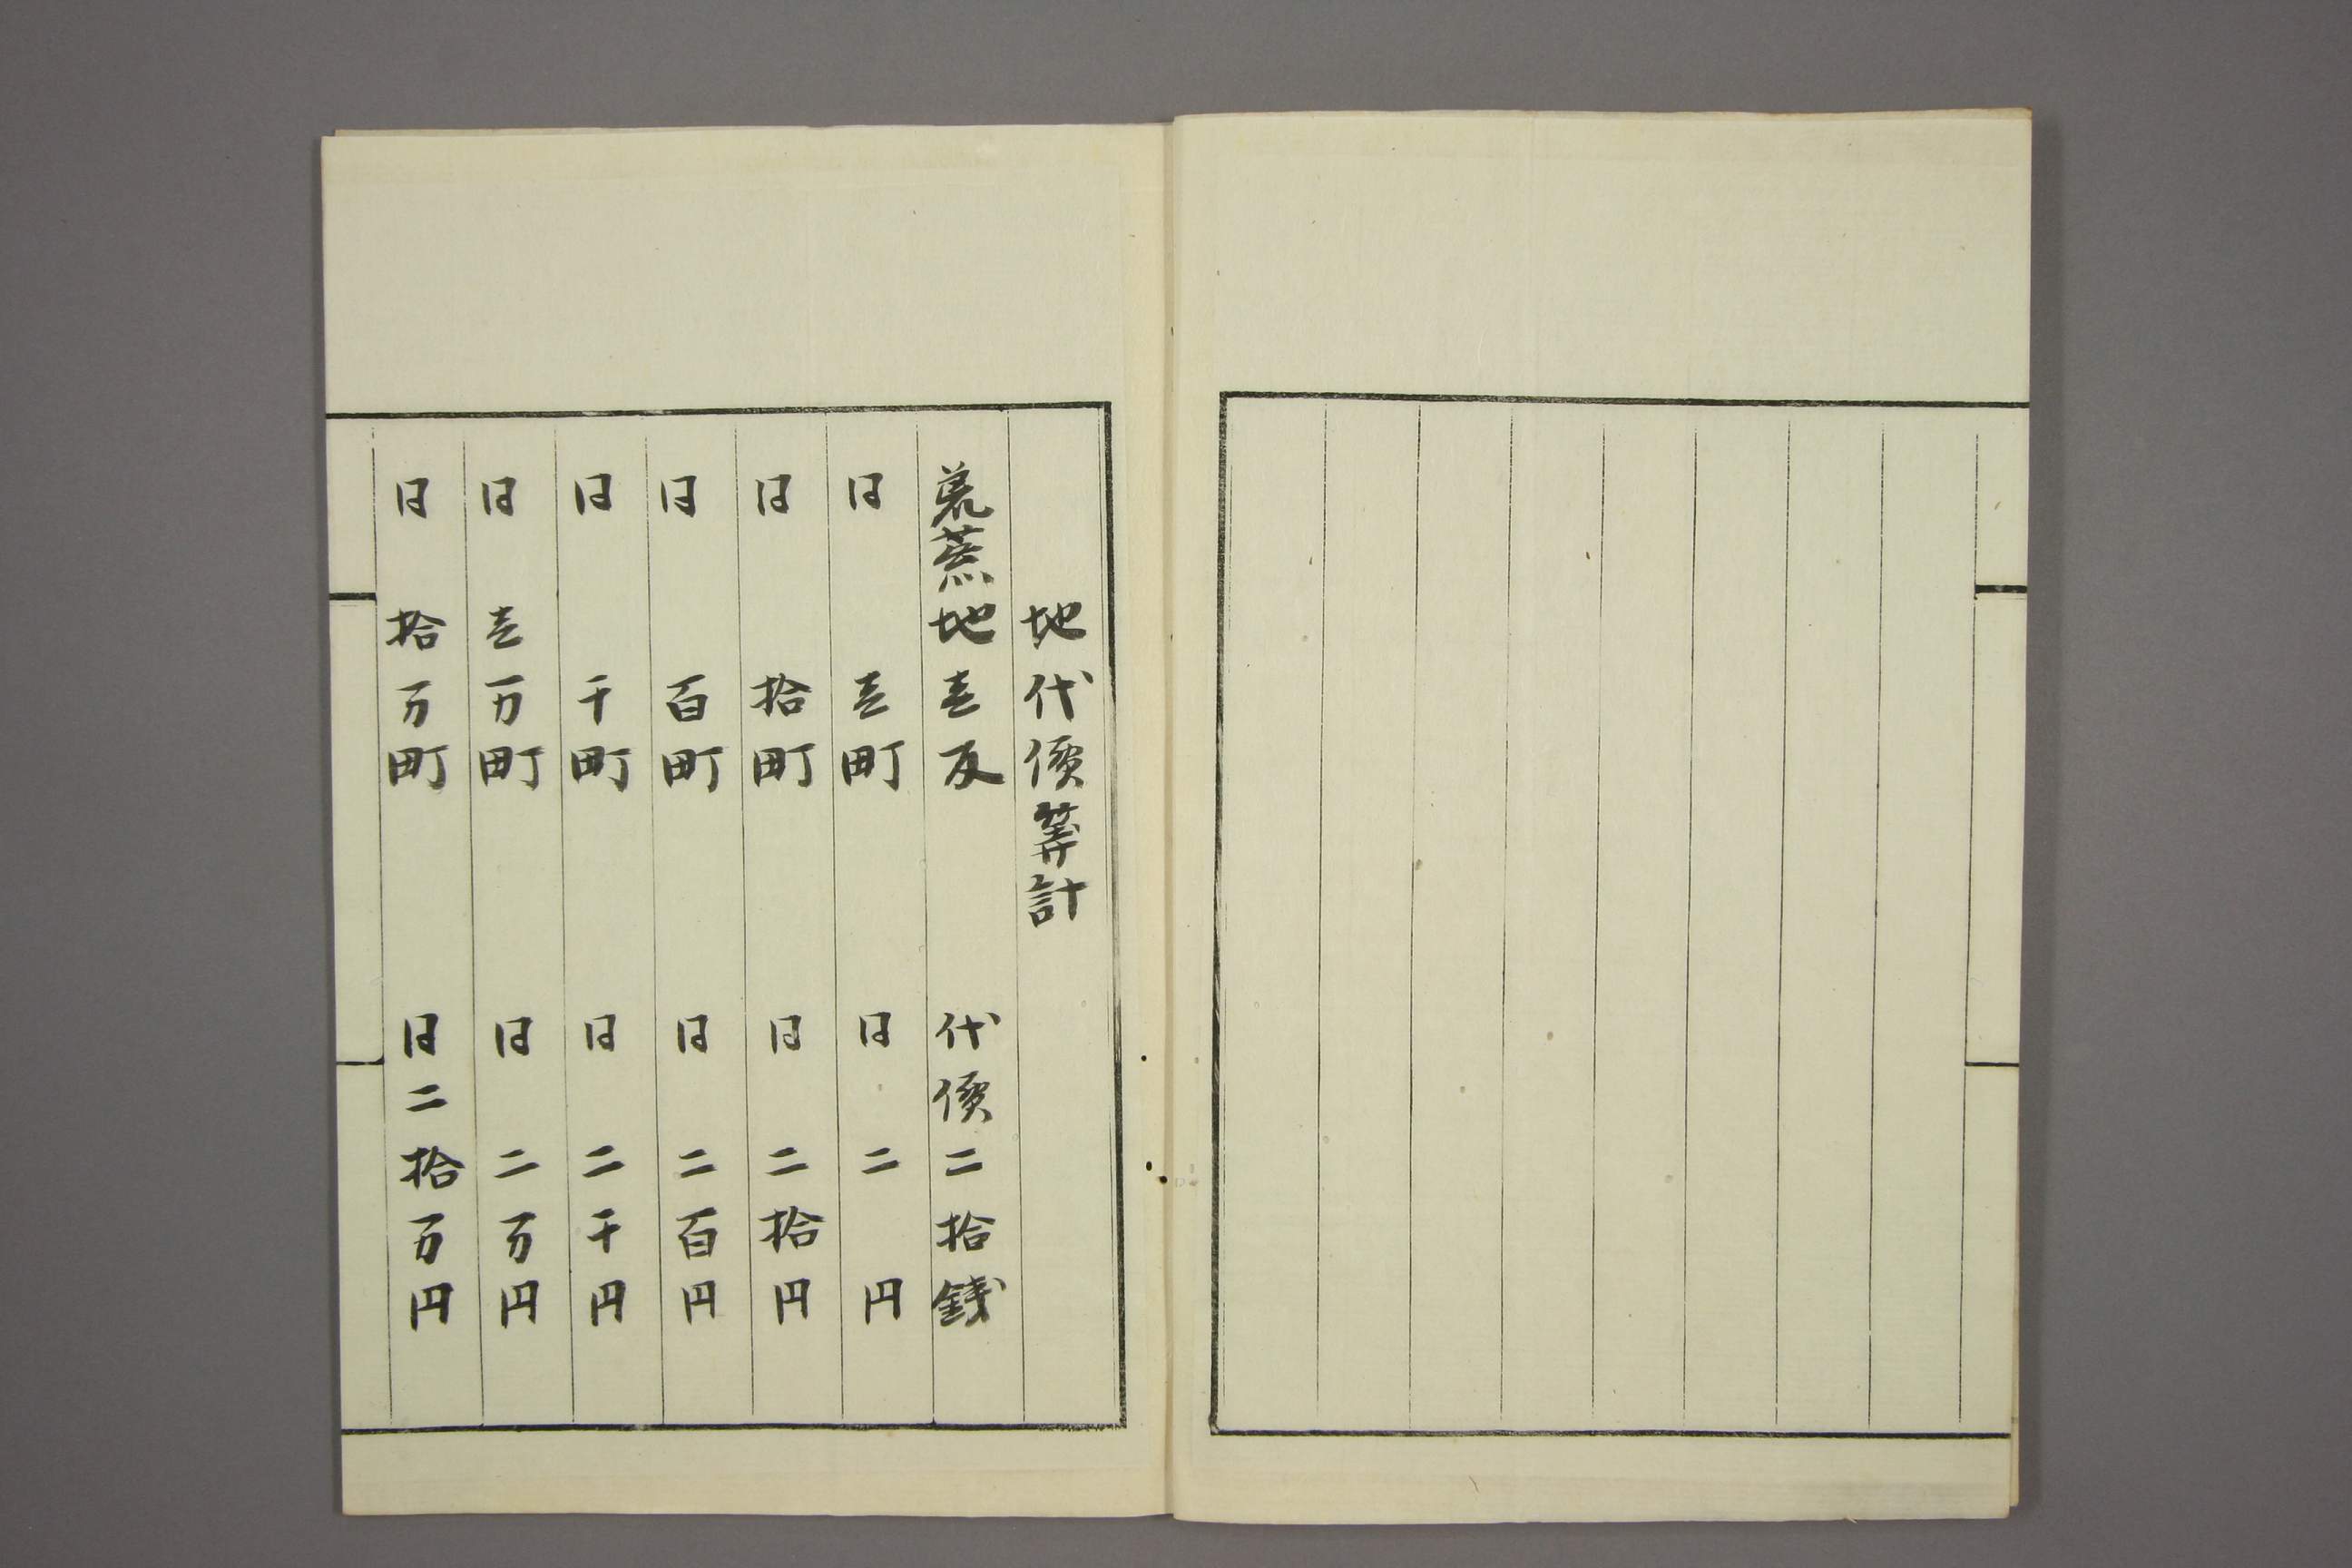 地代價筭計
荒蕪地壱反　代價二拾銭
同　壱町　同　二　円
同　拾町　同　二拾円
同　百町　同　二百円
同　千町　同　二千円
同　壱万町　同　二万円
同　拾万町　同二拾万円